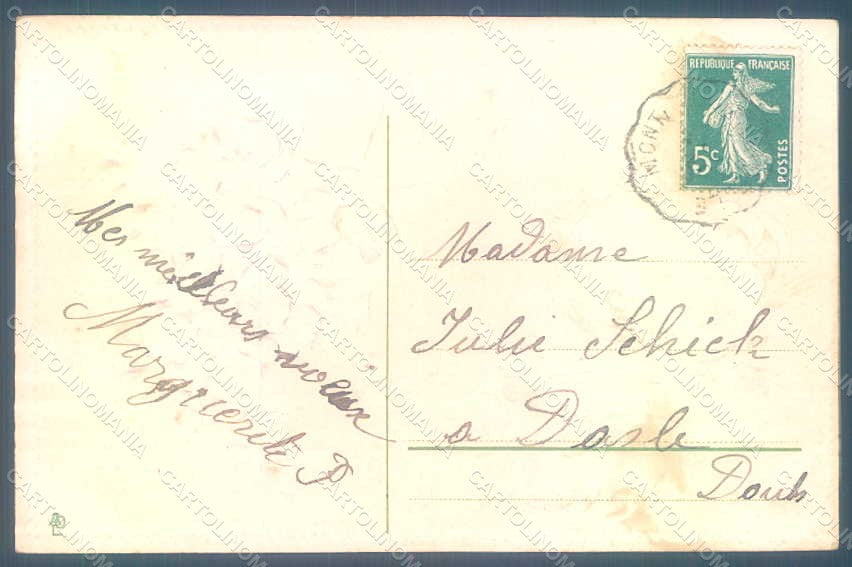 RÉPUBLIQUE FRANÇAISE
5c
POSTES
MONT
Mes meilleurs voeux
Marguerite P
Madame
Julie Schick
a Dasle
Doubs
CARTOLINOMANIA